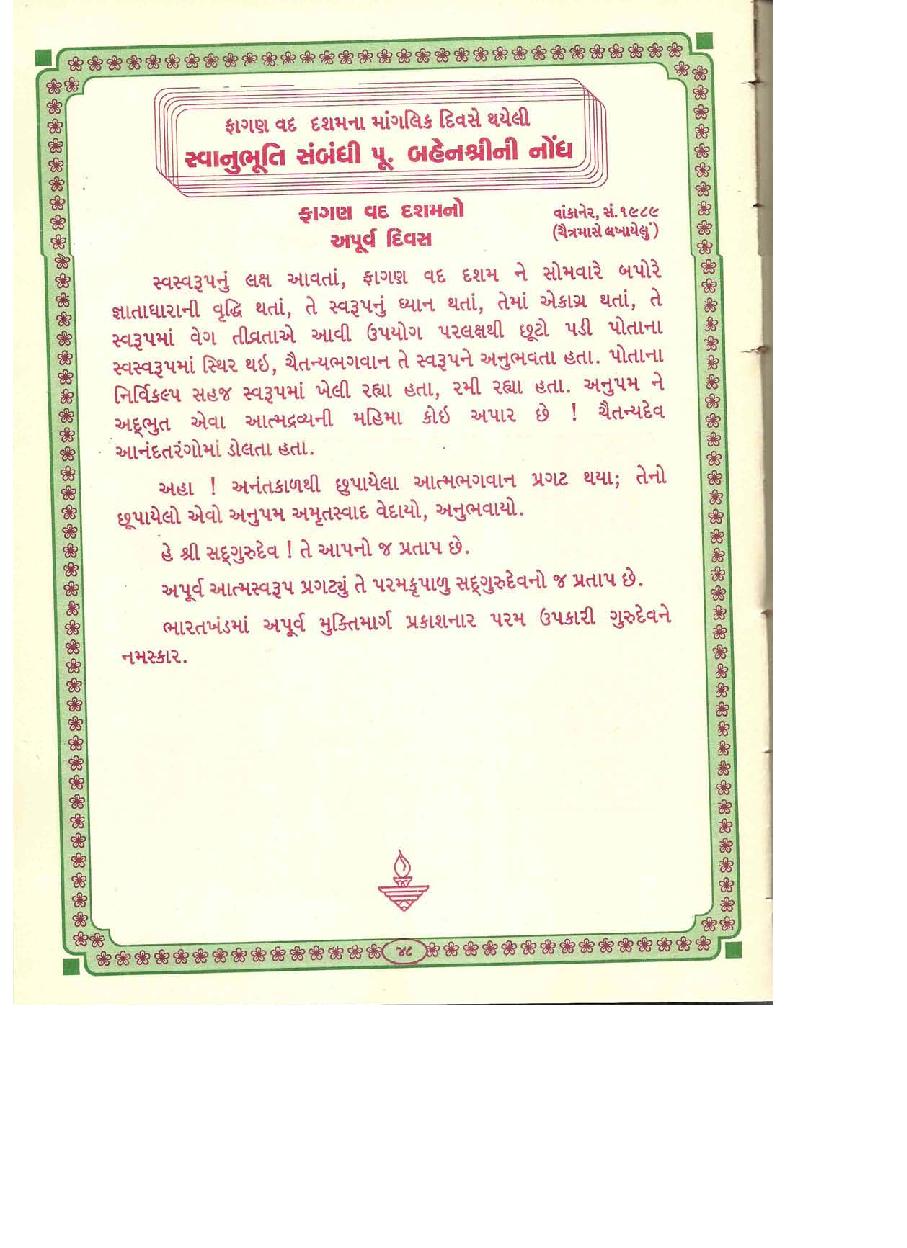 ફાગણ વદ દશમના માંગલિક દિવસે થયેલી
સ્વાનુભૂતિ સંબંધી પૂ. બહેનશ્રીની નોંધ
ફાગણ વદ દશમનો
અપૂર્વ દિવસ
વાંકાનેર, સં. ૧૯૮૯
(ચૈત્રમાસે લખાયેલું)
સ્વસ્વરૂપનું લક્ષ આવતાં, ફાગણ વદ દશમ ને સોમવારે બપોરે
જ્ઞાતાધારાની વૃદ્ધિ થતાં, તે સ્વરૂપનું ધ્યાન થતાં, તેમાં એકાગ્ર થતાં, તે
સ્વરૂપમાં વેગ તીવ્રતાએ આવી ઉપયોગ પરલક્ષથી છૂટો પડી પોતાના
સ્વસ્વરૂપમાં સ્થિર થઇ, ચૈતન્યભગવાન તે સ્વરૂપને અનુભવતા હતા. પોતાના
નિર્વિકલ્પ સહજ સ્વરૂપમાં ખેલી રહ્યા હતા, રમી રહ્યા હતા. અનુપમ ને
અદ્ભુત એવા આત્મદ્રવ્યની મહિમા કોઇ અપાર છે ! ચૈતન્યદેવ
આનંદતરંગોમાં ડોલતા હતા.
અહા ! અનંતકાળથી છુપાયેલા આત્મભગવાન પ્રગટ થયા; તેનો
છૂપાયેલો એવો અનુપમ અમૃતસ્વાદ વેદાયો, અનુભવાયો.
હે શ્રી સદ્ગુરુદેવ ! તે આપનો જ પ્રતાપ છે.
અપૂર્વ આત્મસ્વરૂપ પ્રગટ્યું તે પરમકૃપાળુ સદ્ગુરુદેવનો જ પ્રતાપ છે.
ભારતખંડમાં અપૂર્વ મુક્તિમાર્ગ પ્રકાશનાર પરમ ઉપકારી ગુરુદેવને
નમસ્કાર.
૪૯